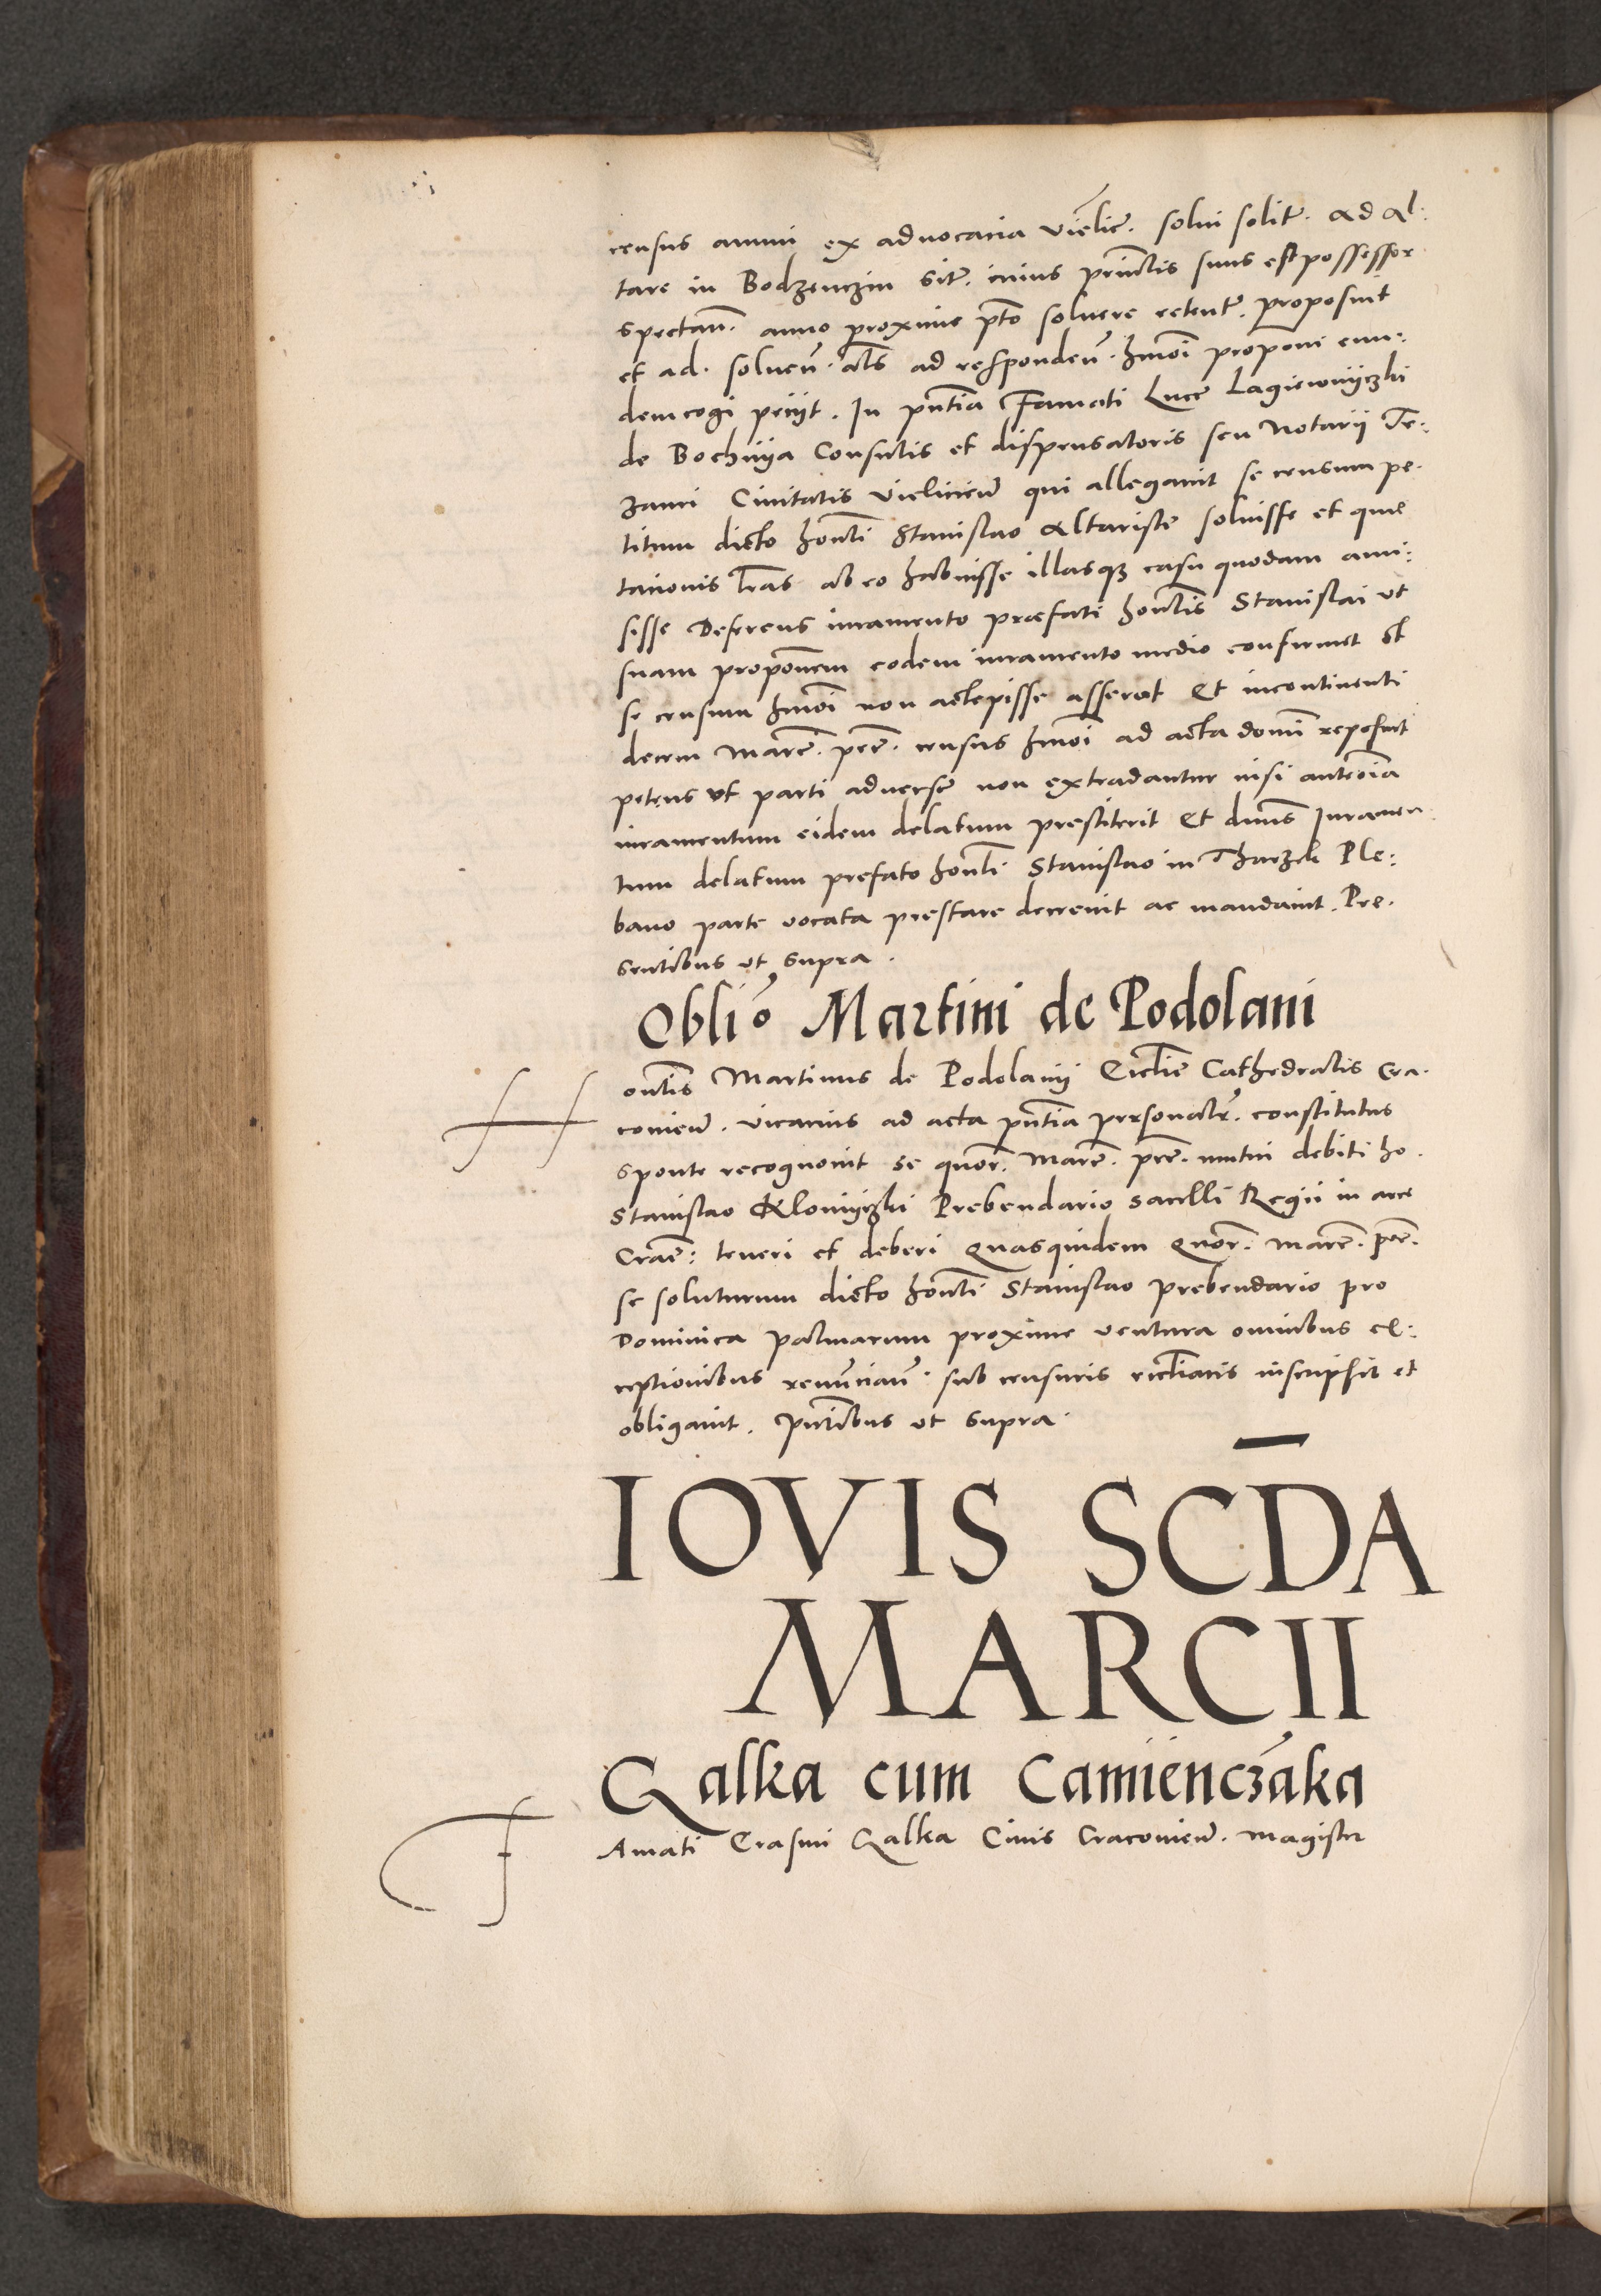 census annui ex aduocacia Vielic̄. solui solit̄. Ad Al:
tare in Bodzenczin sit̄. cuius prin̄ctis suus est possessor
spectan̄. anno proxime p̄to soluere retent̄. proposuit
et ad. soluen̄. al̄s ad responden̄. hmōi propōni eun:
dem cogi peciit. In pn̄tia Famati Luce Lagiewnyczki
de Bochnya Consulis et dispensatoris seu Notarij Te:
zauri Ciuitatis Vielicien̄ qui allegauit se censum pe:
titum dicto hon̄li Stanislao Altariste soluisse et quie
tacionis l̄ras ab eo habuisse illasq3 casu quodam ami:
sisse Deferens iuramento præfati hon̄lis Stanislai vt
suam propōnem eodem iuramento medio confirmet Et
se censum hmōi non accepisse asserat Et incontinenti
decem marc̄. pec̄. census hmōi ad acta domī reposuit
petens vt parti aduerse non extradantur nisi antea
iuramentum eidem delatum prestiterit Et dn̄us Iuramen:
tum delatum prefato hon̄li Stanislao in Tharzek Ple:
bano parte vocata prestare decreuit ac mandauit. Pre:
sentibus vt supra.
Obliō Martini de Podolani
H on̄lis Martinus de Podolanij Ecclīe Cathedralis Cra:
couien̄. vicarius ad acta pn̄tia personalr̄. constitutus
sponte recognouit se quor̄. marc̄. pec̄. mutui debiti ho.
Stanislao Klomyczki Prebendario sacelli Regii in arce
Crac̄: teneri et deberi Quasquidem Quor̄. marc̄. pec̄.
se soluturum dicto hon̄li Stanislao prebendario pro
Dominica palmarum proxime ventura omnibus ex:
ceptionibus renūncian̄. sub censuris eccliacis inscripsit et
obligauit. Pn̄tibus vt supra.
IOVIS SCD̄A
MARCII
Galka cum Camienczāka
F Amati Erasmi Galka Ciuis Cracouien̄. magistr